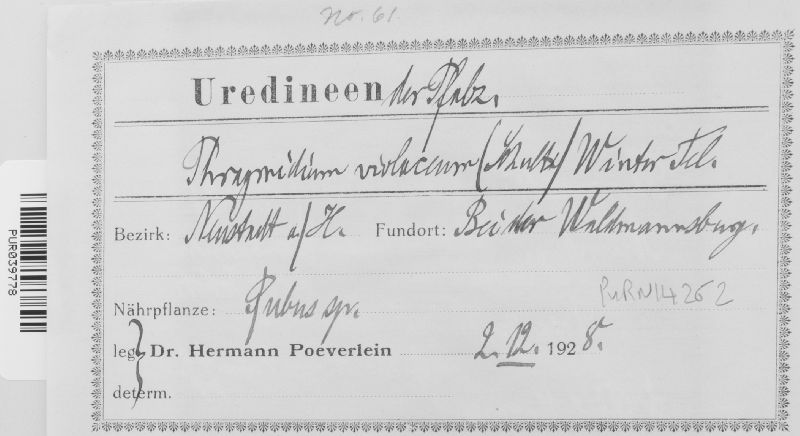 No. 61.
Uredineen der Pfalz.
Phragmidium violaceum (Schultz) Winter Tel.
Bezirk: Neustadt a/H. Fundort: Bei der Waldmannsburg.
Nährpflanze: Rubus sp.
PURN14262
leg. Dr. Hermann Poeverlein 2.12. 1928.
determ.
PUR039778